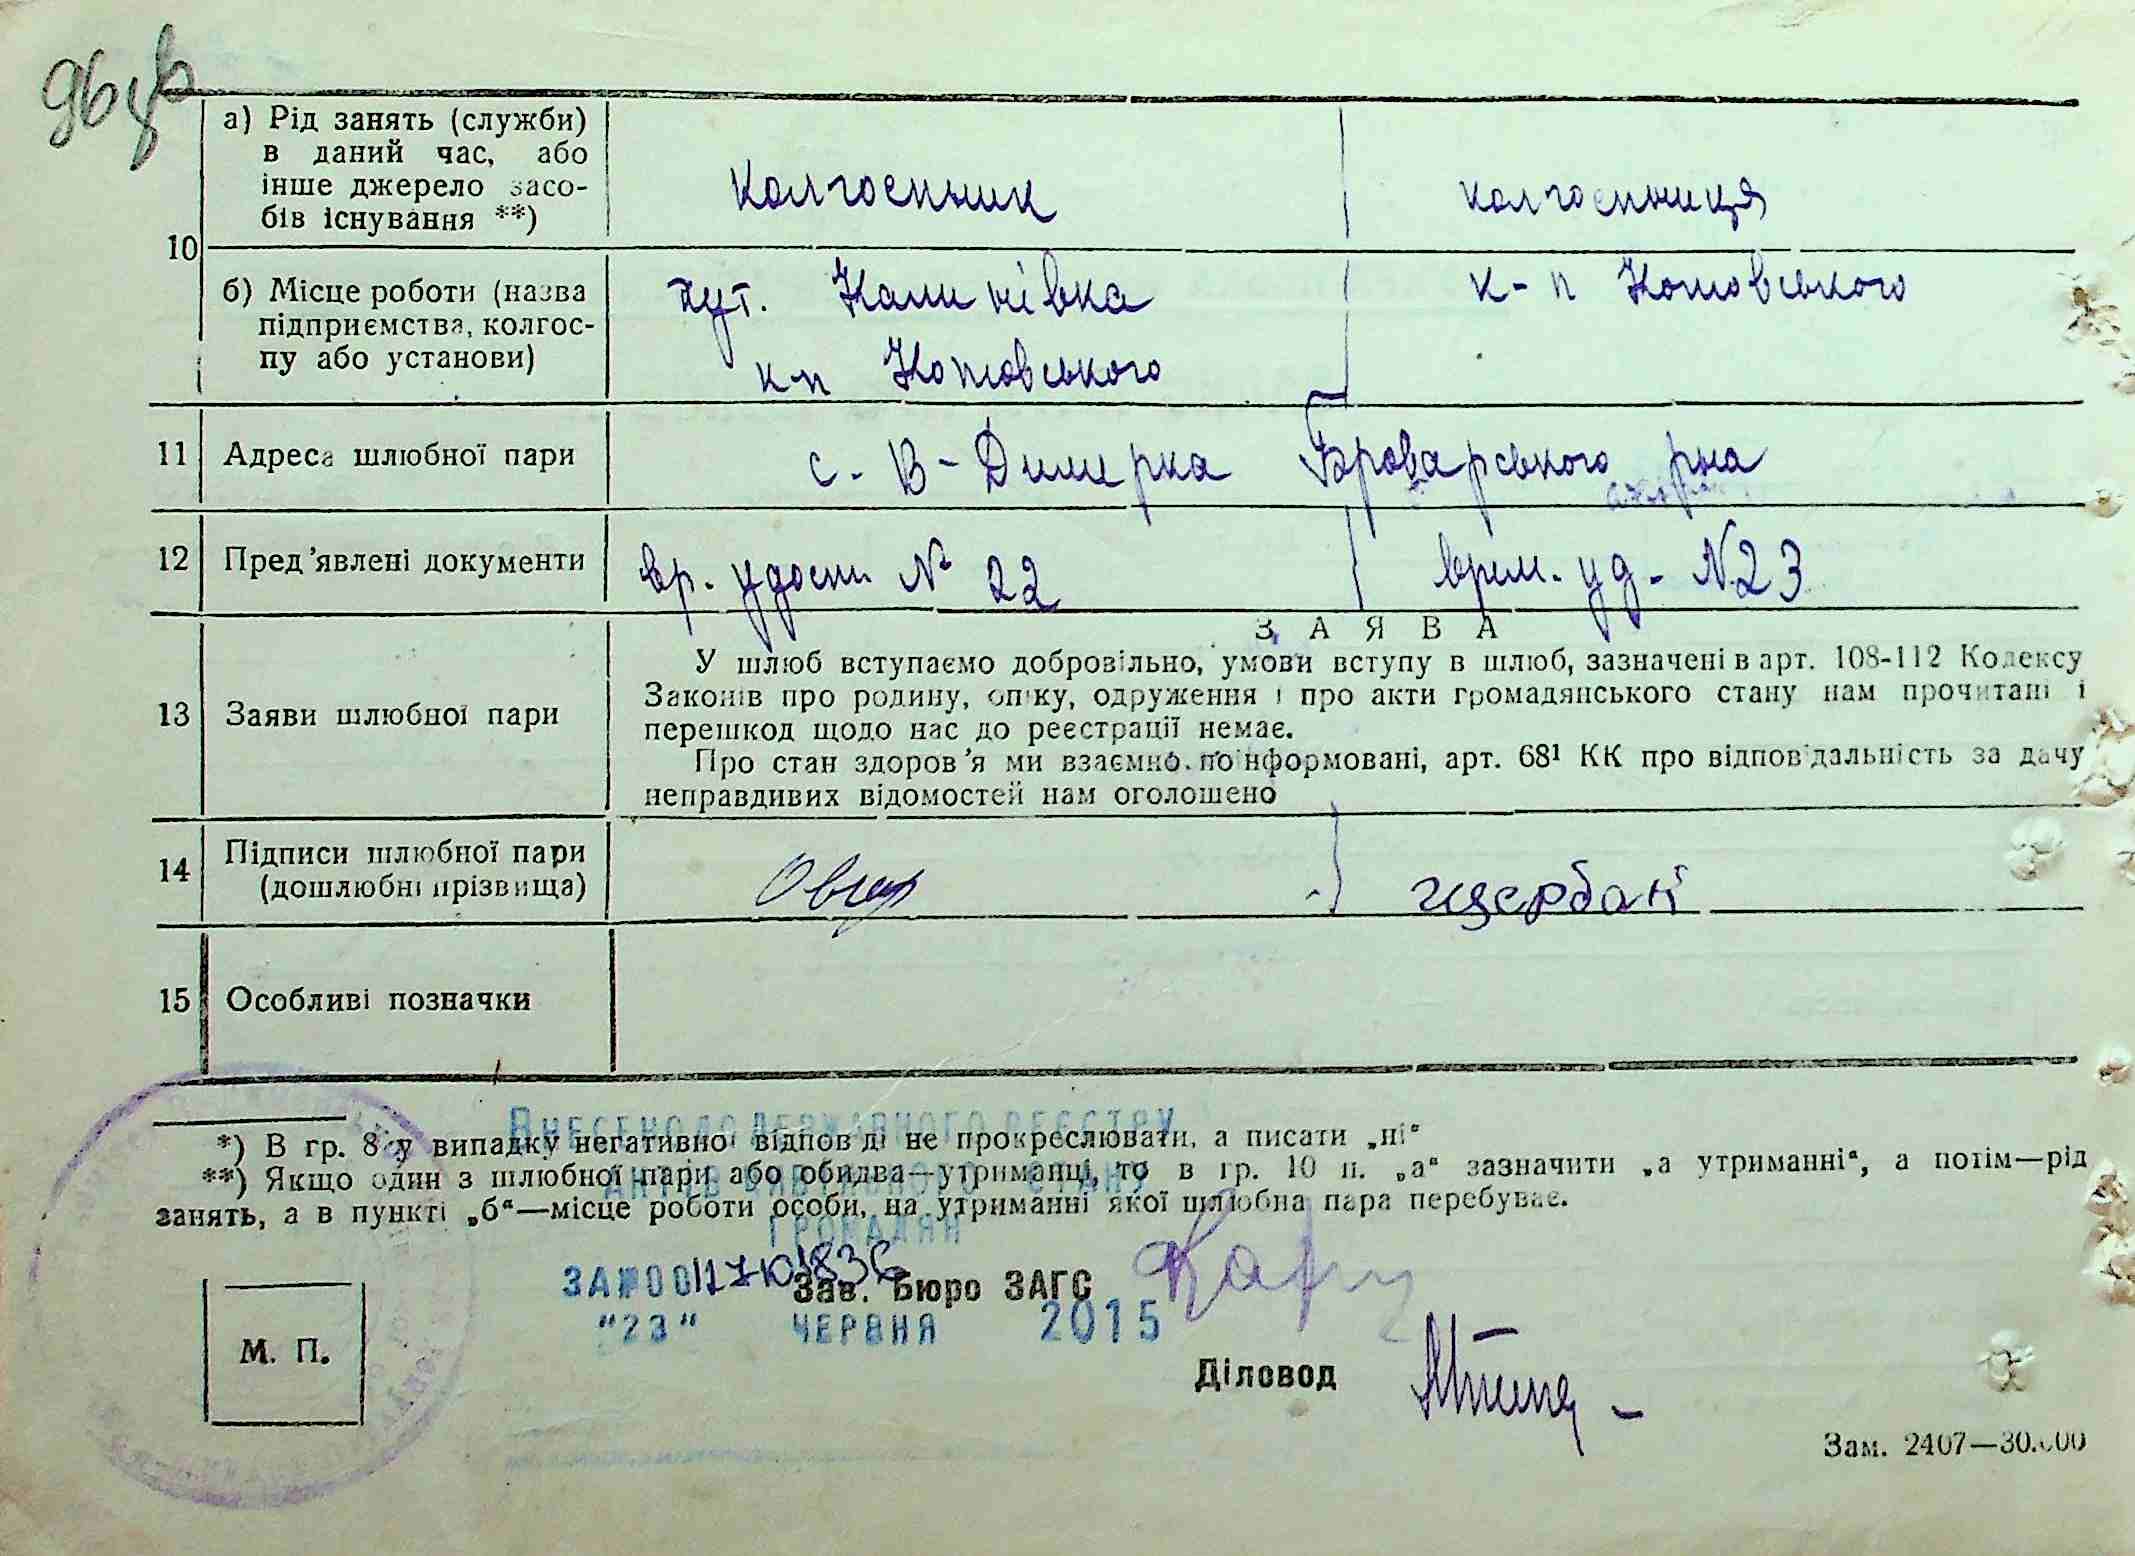 а) Рід занять (служби)
в даний час, або
інше джерело засо-
бів існування **)
колгоспник
колгоспниця
10
б) Місце роботи (назва
підприємства, колгос-
пу або установи)
хут. Калинівка
к-п Котовського
к-п Котовського
11 Адреса шлюбної пари
с. В-Димерка Броварського р-на
12 Пред'явлені документи
вр. удостов № 22
врем. уд- N 23
13 Заяви шлюбної пари
ЗАЯВА
У шлюб вступаємо добровільно, умови вступу в шлюб, зазначені в арт. 108-112 Кодексу
Законів про родину, опіку, одруження і про акти громадянського стану нам прочитані і
перешкод щодо нас до реєстрації немає.
Про стан здоров'я ми взаємно поінформовані, арт. 68¹ КК про відповідальність за дачу
неправдивих відомостей нам оголошено
14 Підписи шлюбної пари
(дошлюбні прізвища)
щербак
15 Особливі позначки
ВНЕСЕНО ДО ДЕРЖАВНОГО РЕЄСТРУ
АКТІВ ЦИВІЛЬНОГО СТАНУ
ГРОМАДЯН
*) В гр. 8 у випадку негативної відповіді не прокреслювати, а писати „ні“
**) Якщо один з шлюбної пари або обидва—утриманці, то в гр. 10 п. „а“ зазначити „а утриманні“, а потім—рід
занять, а в пункті „б“—місце роботи особи, на утриманні якої шлюбна пара перебуває.
ЗА №
Зав. Бюро ЗАГС
"23" ЧЕРВНЯ 2015
М. П.
Діловод
Зам. 2407—30.000